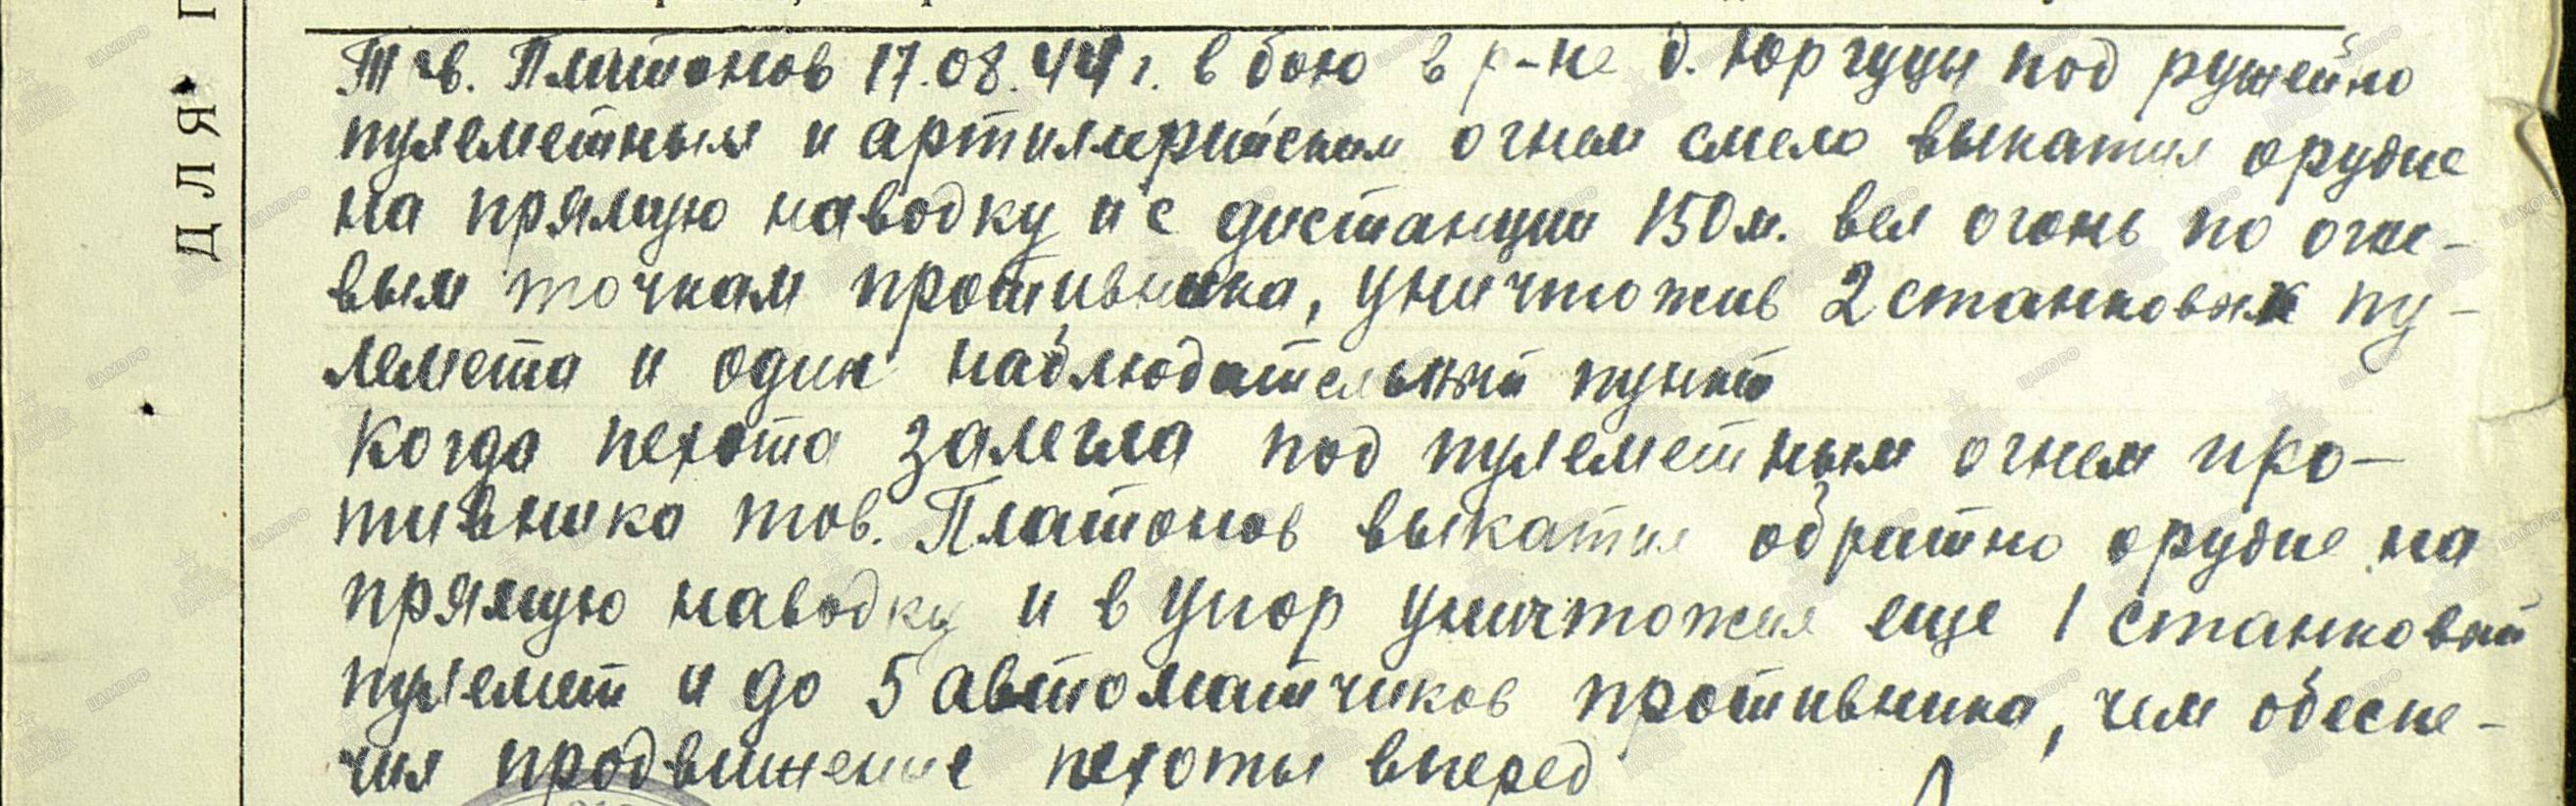 Тов. Платонов 17.08.44 г. в бою в р-не д. Юргуцы под ружейно
пулеметным и артиллерийским огнем смело выкатил орудие
на прямую наводку и с дистанции 150 м. вел огонь по огне-
вым точкам противника, уничтожив 2 станковых пу-
лемета и один наблюдательный пункт
Когда пехота залегла под пулеметным огнем про-
тивника тов. Платонов выкатил обратно орудие на
прямую наводку и в упор уничтожил еще 1 станковый
пулемет и до 5 автоматчиков противника, чем обеспе-
чил продвижение пехоты вперед
ДЛЯ